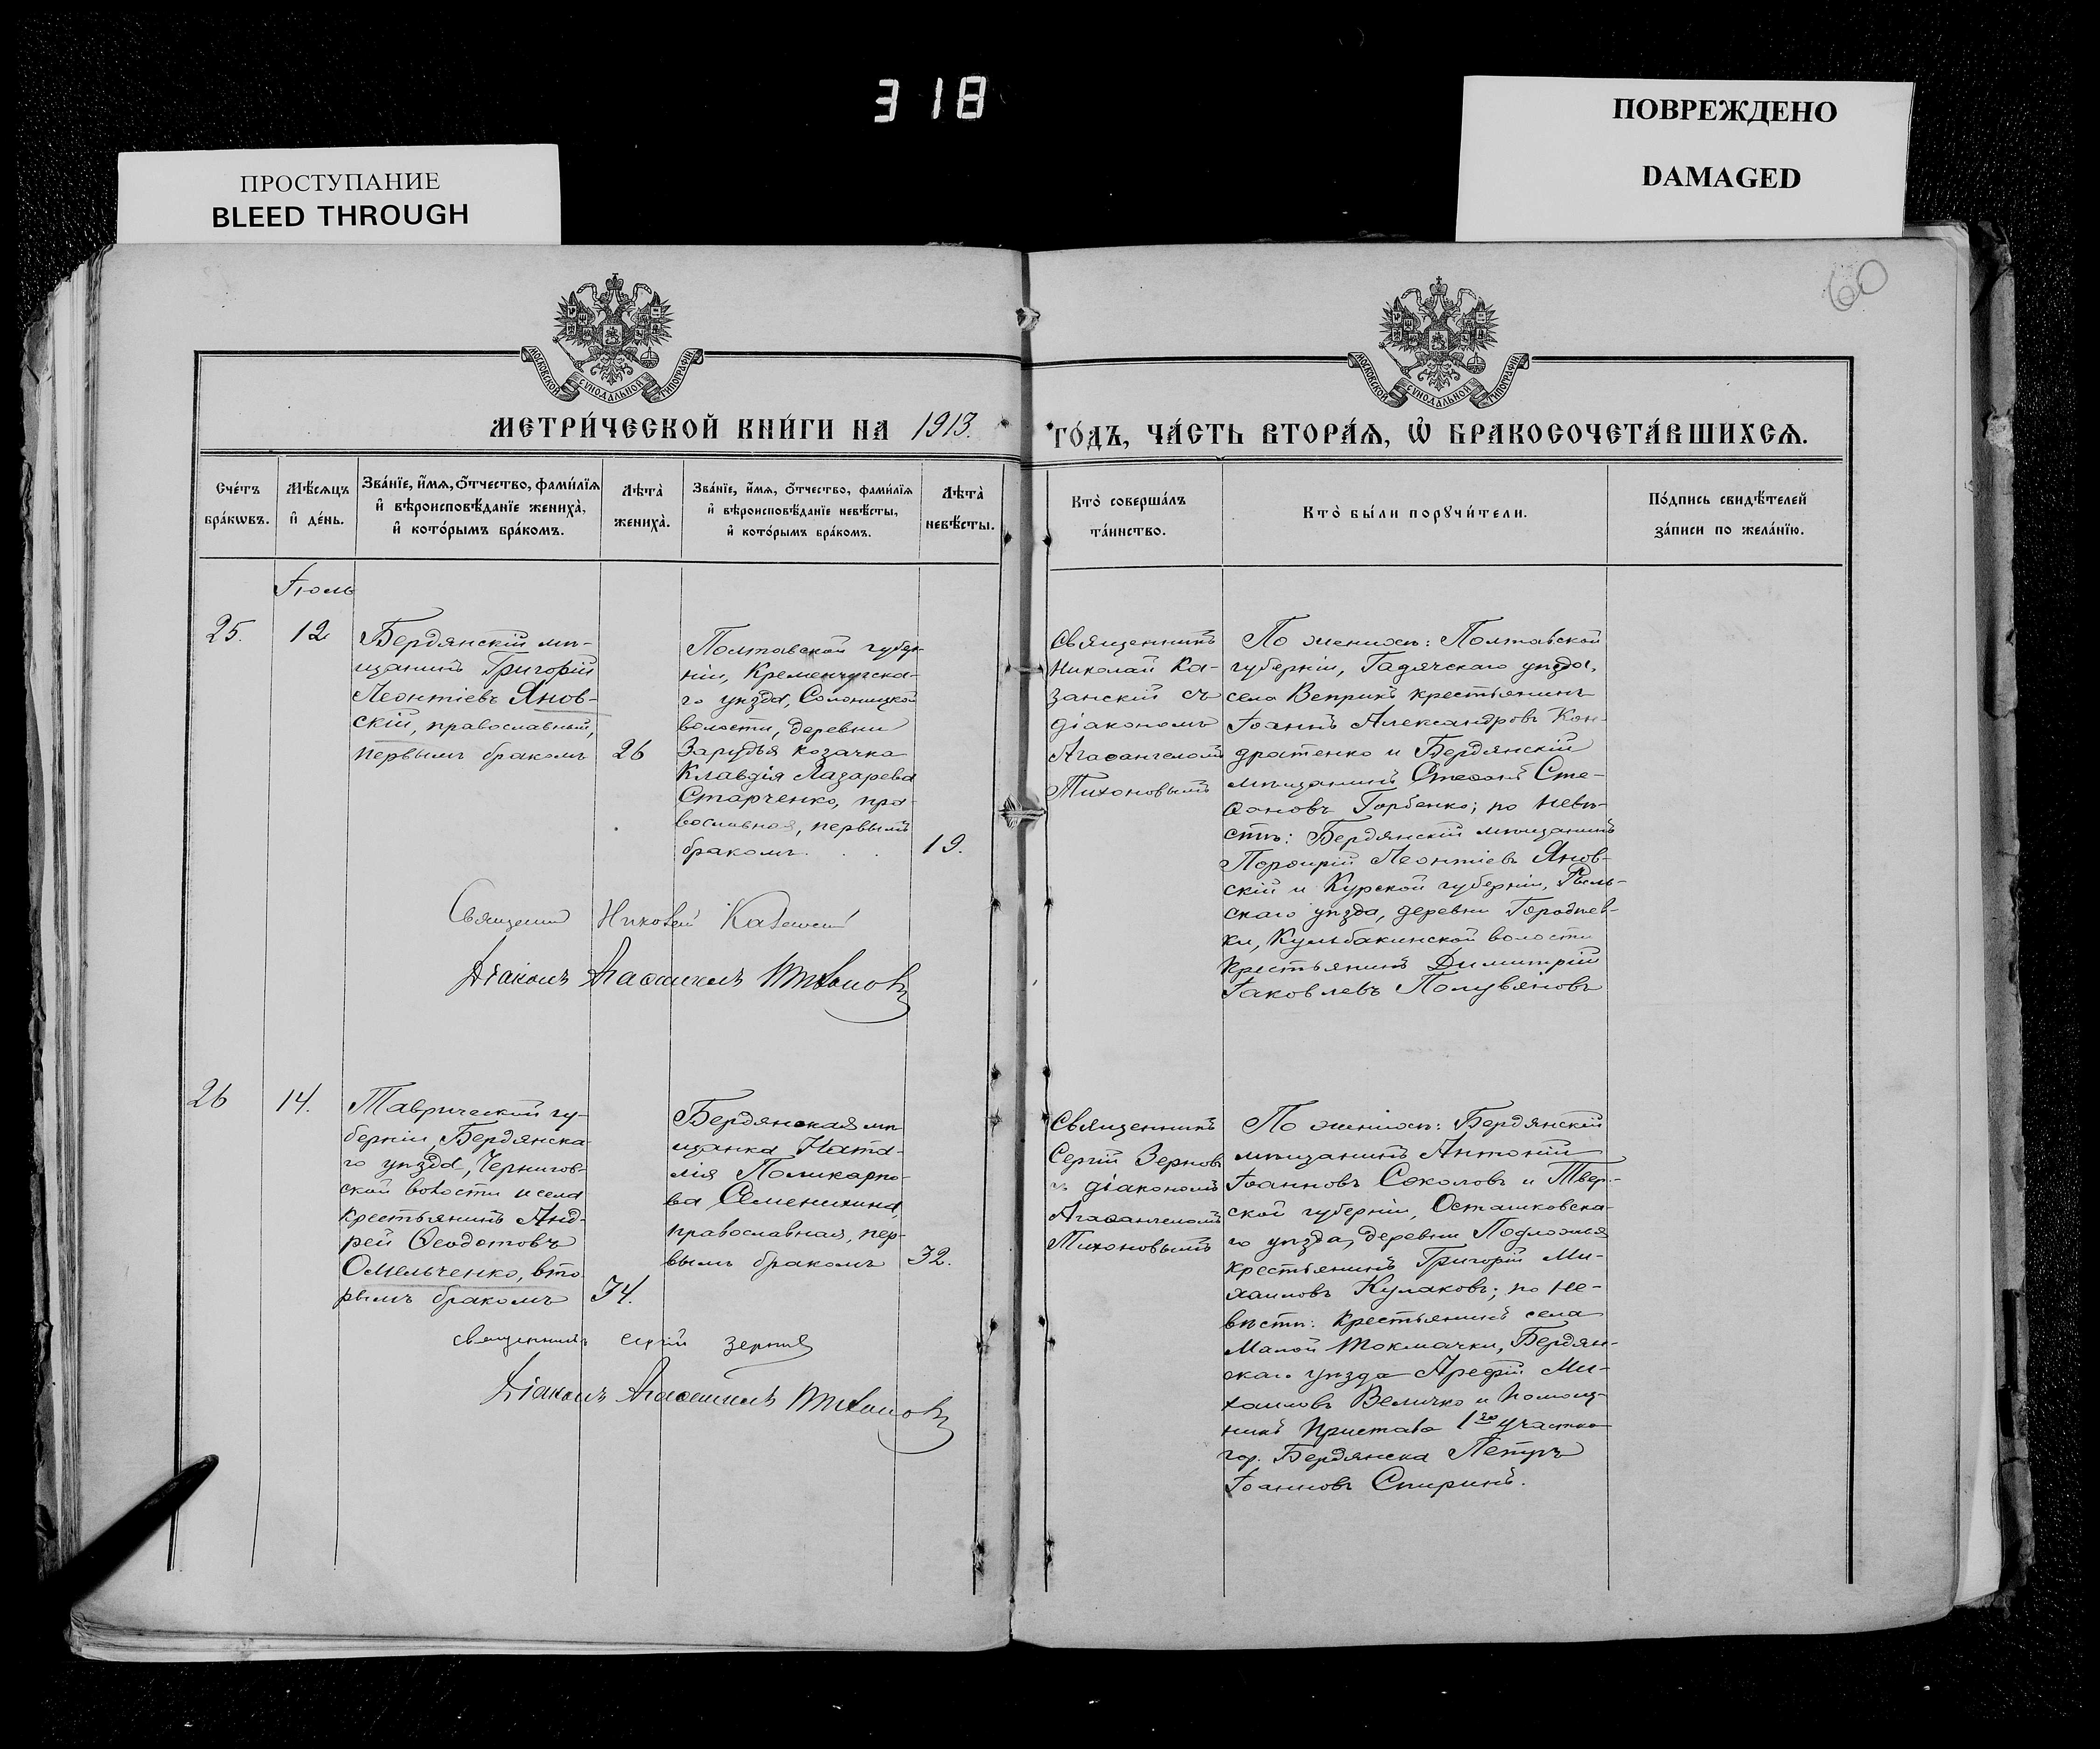 318
ПРОСТУПАНИЕ
BLEED THROUGH
ПОВРЕЖДЕНО
DAMAGED
60
МОСКОВСКОЙ СѴНОДАЛЬНОЙ ТИПОГРАФІИ
МОСКОВСКОЙ СѴНОДАЛЬНОЙ ТИПОГРАФІИ
МЕТРИ́ЧЕСКОЙ КНИ́ГИ НА 1913.
ГО́ДЪ, ЧА́СТЬ ВТОРА́Ѧ, Ѡ҆ БРАКОСОЧЕТА́ВШИХСѦ.
Сче́тъ
бра́кѡвъ.
Мѣ́сѧцъ
и҆ де́нь.
Зва́нїе, и҆́мѧ, ѻ҆́тчество, фами́лїѧ
и҆ вѣроисповѣ́данїе жениха̀,
и҆ кото́рымъ бра́комъ.
Лѣ́та̀
жениха̀.
Зва́нїе, и҆́мѧ, ѻ҆́тчество, фами́лїѧ
и҆ вѣроисповѣ́данїе невѣ́сты,
и҆ кото́рымъ бра́комъ.
Лѣ́та̀
невѣ́сты.
Кто̀ соверша́лъ
та́инство.
Кто̀ бы́ли порꙋчи́тели.
По́дпись свидѣ́телей
за́писи по жела́нїю.
Іюль
25.
12
Бердянскій мѣ-
щанинъ Григорій
Леонтіевъ Янов-
скій, православный,
первымъ бракомъ
26
Полтавской губер-
ніи, Кременчугска-
го уѣзда, Солоницкой
волости, деревни
Зарудья козачка
Клавдія Лазарева
Старченко, пра-
вославная, первымъ
бракомъ . .
19.
Священникъ
Николай Ка-
занскій съ
діакономъ
Агаѳангеломъ
Тихоновымъ
По женихѣ: Полтавской
губерніи, Гадячскаго уѣзда,
села Веприкъ крестьянинъ
Іоаннъ Александровъ Кон-
дратенко и Бердянскій
мѣщанинъ Стеѳанъ Сте-
ѳановъ Горбенко; по невѣ-
стѣ: Бердянскій мѣщанинъ
Порѳирій Леонтіевъ Янов-
скій и Курской губерніи, Рыль-
скаго уѣзда, деревни Городнев-
ки, Кульбакинской волости
крестьянинъ Димитрій
Іаковлевъ Полувяновъ
Священникъ Николай Казанскій
Діаконъ Агаѳангелъ Тихоновъ
26
14.
Таврической гу-
берніи, Бердянска-
го уѣзда, Чернигов-
ской волости и села
крестьянинъ Анд-
рей Ѳеодотовъ
Омельченко, вто-
рымъ бракомъ
34.
Бердянская мѣ-
щанка Ната-
лія Поликарпо-
ва Семенихина,
православная, пер-
вымъ бракомъ
32.
Священникъ
Сергій Зерновъ
съ діакономъ
Агаѳангеломъ
Тихоновымъ
По женихѣ: Бердянскій
мѣщанинъ Антоній
Іоанновъ Соколовъ и Твер-
ской губерніи, Осташковска-
го уѣзда, деревни Подложья
крестьянинъ Григорій Ми-
хаиловъ Кулаковъ; по не-
вѣстѣ: крестьянинъ села
Малой Токмачки, Бердян-
скаго уѣзда Арефій Ми-
хаиловъ Величко и помощ-
никъ пристава 1го участка
гор. Бердянска Петръ
Іоанновъ Спиринъ.
священникъ Сергій Зерновъ
Діаконъ Агаѳангелъ Тихоновъ